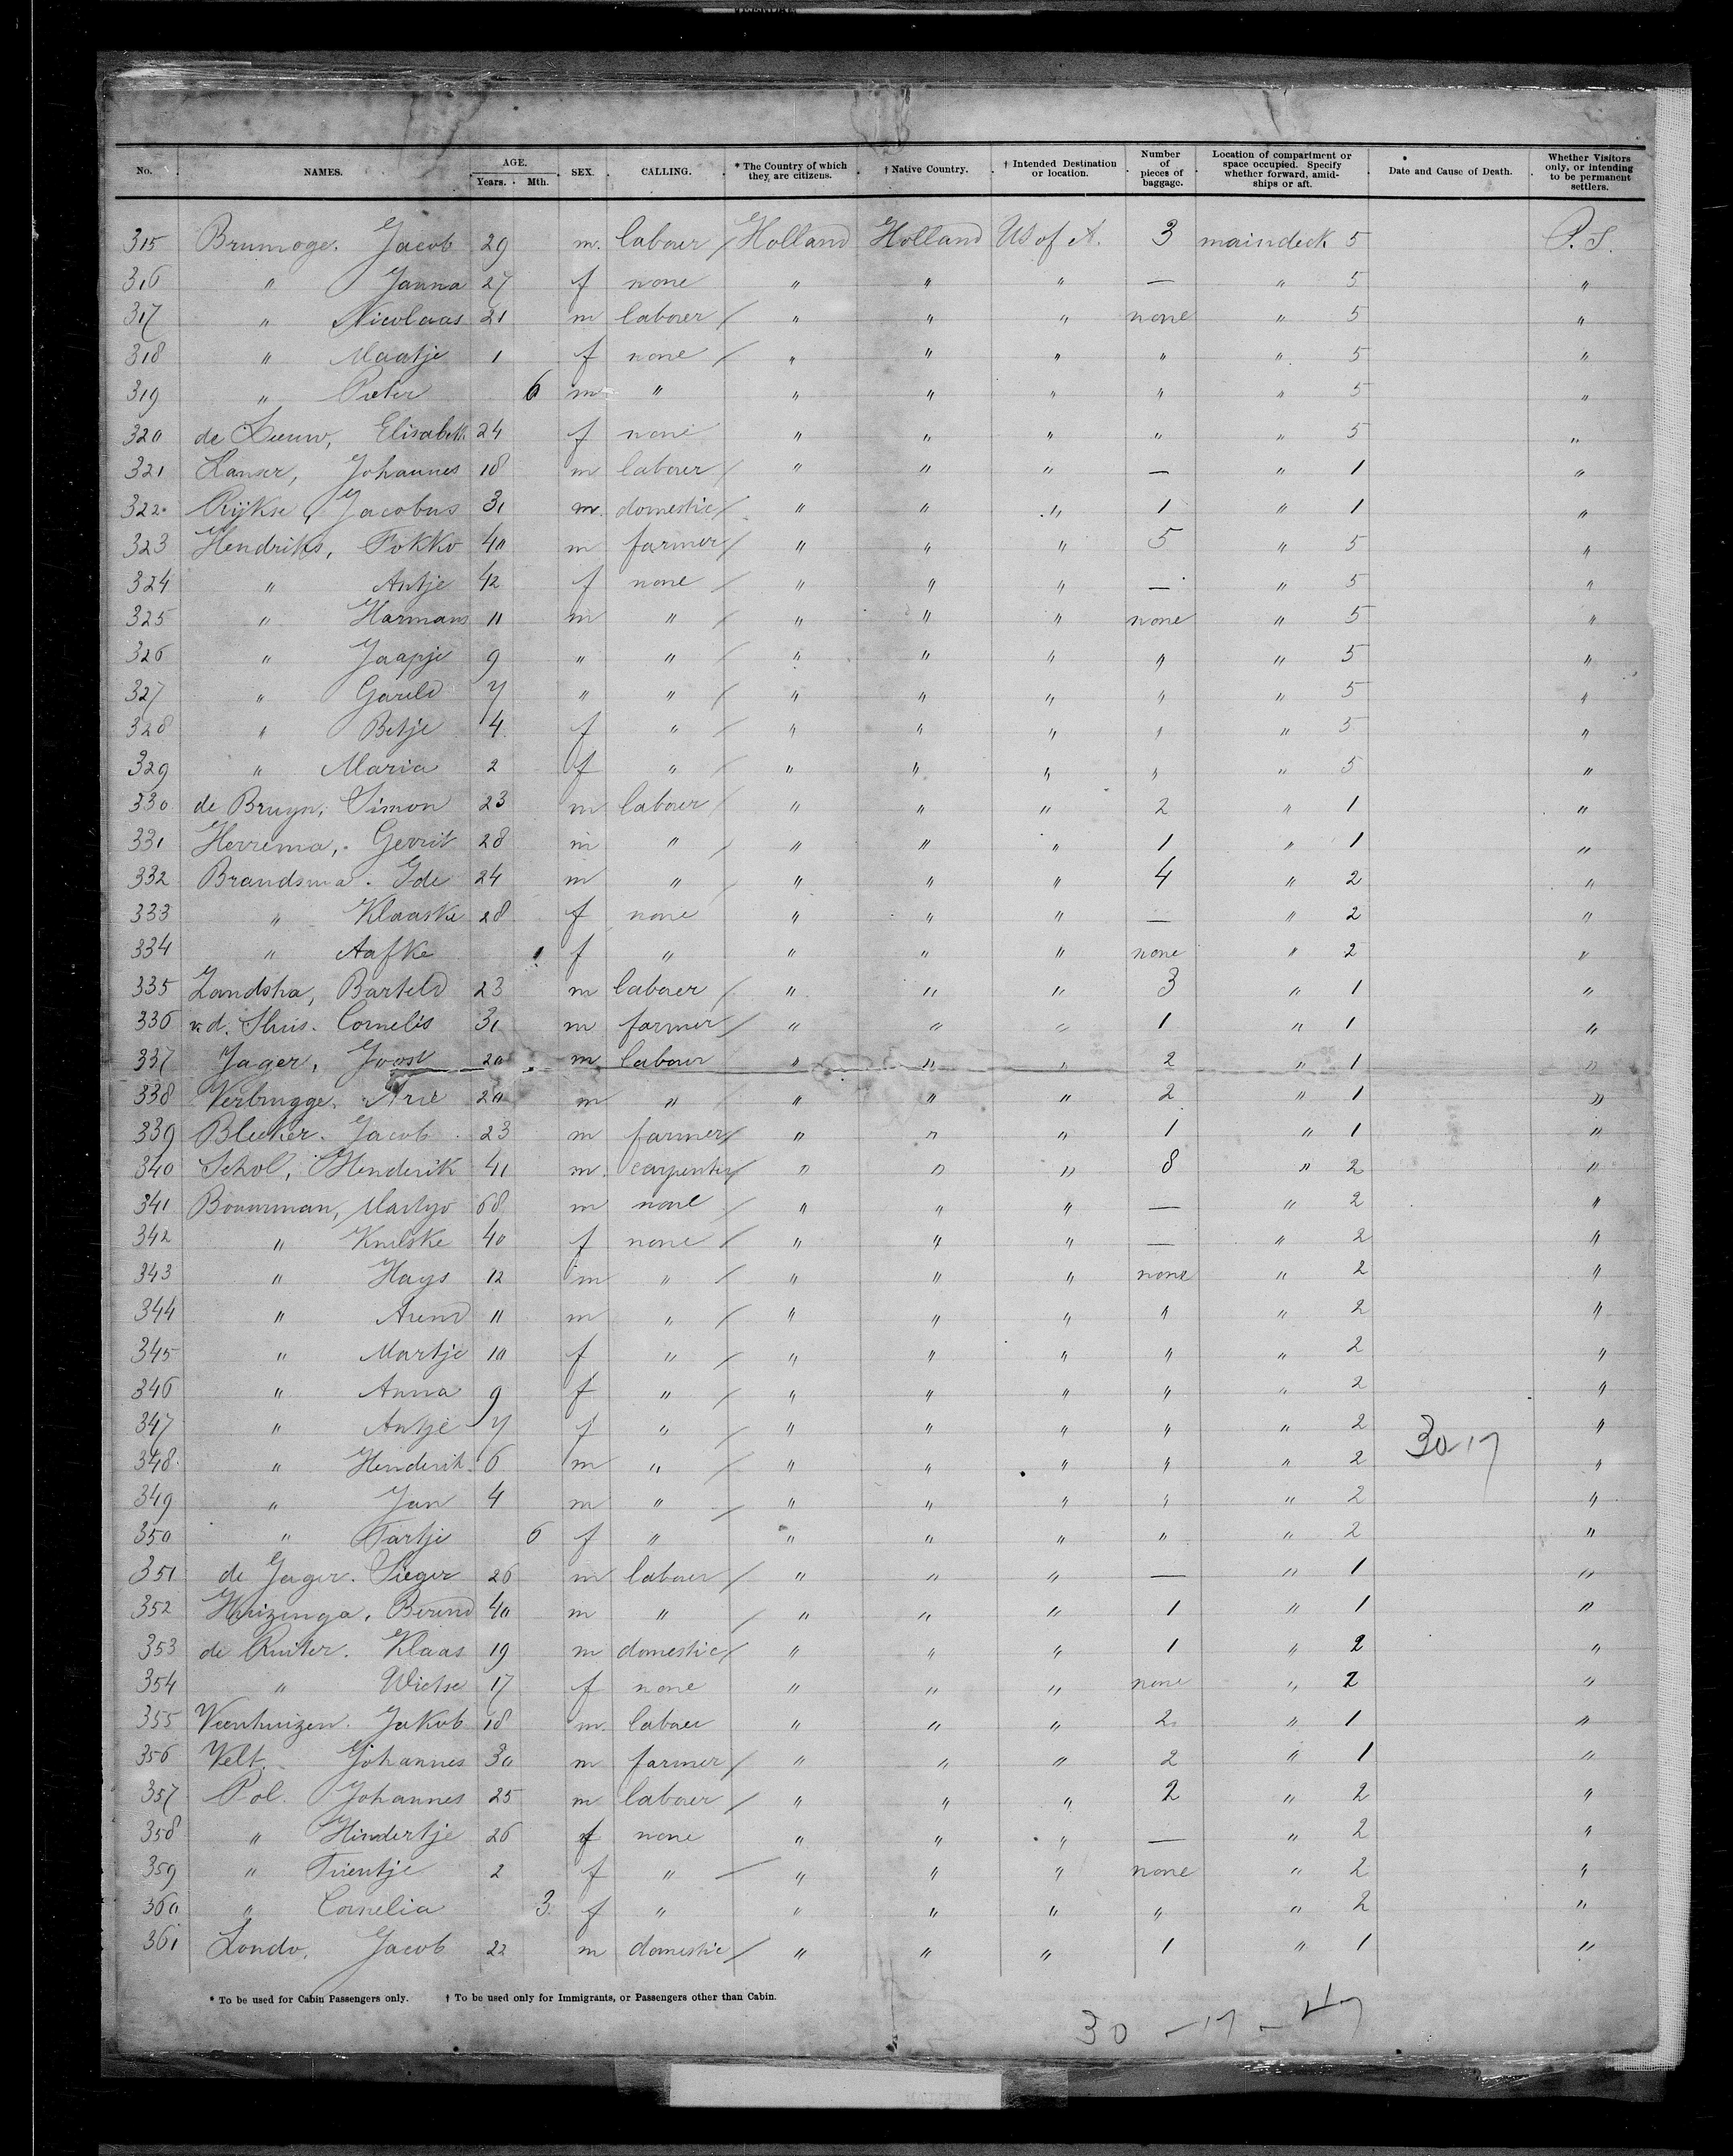 No. NAMES. AGE. Years. Mth. SEX. CALLING. * The Country of which they are citizens. † Native Country. † Intended Destination or location. Number of pieces of baggage. Location of compartment or space occupied. Specify whether forward, amidships or aft. Date and Cause of Death. Whether Visitors only, or intending to be permanent settlers.
315 Brumoge. Jacob 29 m. labour / Holland Holland US of A. 3 maindeck 5 P.S.
316 " Janna 27 f none " " " — " 5 "
317 " Nicolaas 21 m laborer / " " " none " 5 "
318 " Maatje 1 f none / " " " " " 5 "
319 " Pieter 6 m " " " " " " 5 "
320 de Leeuw, Elisabeth 24 f none " " " " " 5 "
321 Kanser, Johannes 18 m laborer / " " " — " 1 "
322. Rijkse, Jacobus 31 m. domestic / " " " 1 " 1 "
323 Hendriks, Fokko 40 m farmer / " " " 5 " 5 "
324 " Antje 42 f none / " " " — " 5 "
325 " Harmans 11 m " " " " none " 5 "
326 " Jaapje 9 " " / " " " " " 5 "
327 " Gareld 7 " " / " " " " " 5 "
328 " Betje 4 f " / " " " " " 5 "
329 " Maria 2 f " / " " " " " 5 "
330 de Bruyn, Simon 23 m labour / " " " 2 " 1 "
331 Herrema, Gerrit 28 m " / " " " 1 " 1 "
332 Brandsma. Ide 24 m " / " " " 4 " 2 "
333 " Klaaske 28 f none " " " — " 2 "
334 " Aafke 1 f " " " " none " 2 "
335 Zandstra, Barteld 23 m laborer / " " " 3 " 1 "
336 v.d. Sluis. Cornelis 31 m farmer / " " " 1 " 1 "
337 Jager, Joost 20 m labour " " " 2 " 1 "
338 Verbrugge, Arie 20 m " " " " 2 " 1 "
339 Bleeker. Jacob 23 m farmer / " " " 1 " 1 "
340 Schol, Henderik 41 m. carpenter / " " " 8 " 2 "
341 Bouwman, Martyo 68 m none / " " " — " 2 "
342 " Knelske 40 f none / " " " — " 2 "
343 " Hays 12 m " / " " " none " 2 "
344 " Arend 11 m " / " " " " " 2 "
345 " Martje 10 f " / " " " " " 2 "
346 " Anna 9 f " / " " " " " 2 "
347 " Antje 7 f " / " " " " " 2 "
348. " Henderik 6 m " / " " " " " 2 30-17 "
349 " Jan 4 m " / " " " " " 2 "
350 " Tartje 6 f " " " " " " 2 "
351 de Jager. Sieger 26 m labour / " " " — " 1 "
352 Huizinga, Berend 40 m " / " " " 1 " 1 "
353 de Ruiter. Klaas 19 m domestic / " " " 1 " 2 "
354 " Wietse 17 f none " " " none " 2 "
355 Veenhuizen. Jakob 18 m. labour " " " 2 " 1 "
356 Velt. Johannes 30 m farmer / " " " 2 " 1 "
357 Pol. Johannes 25 m laborer / " " " 2 " 2 "
358 " Hindertje 26 f none " " " — " 2 "
359 " Trientje 2 f " / " " " none " 2 "
360 " Cornelia 3. f " " " " " " 2 "
361 Londo, Jacob 22 m domestic / " " " 1 " 1 "
* To be used for Cabin Passengers only. † To be used only for Immigrants, or Passengers other than Cabin.
30 - 17 - 47